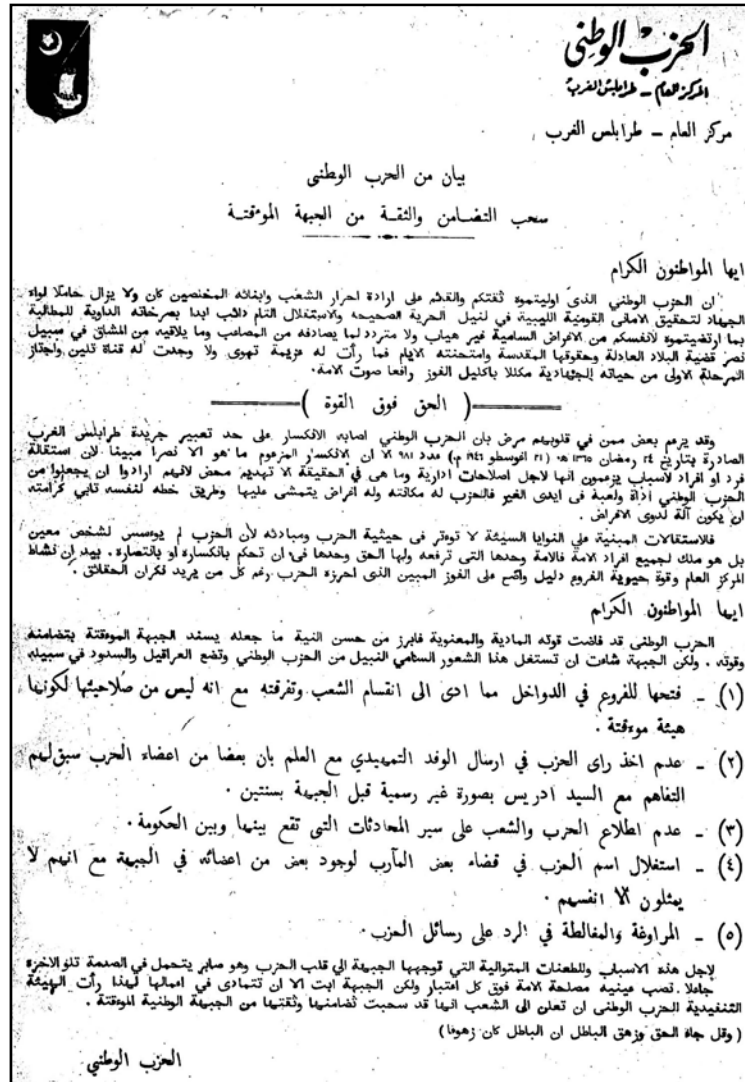 الحزب الوطني
المركز العام - طرابلس الغرب
مركز العام - طرابلس الغرب
بيان من الحزب الوطنى
سحب التضامن والثقة من الجبهة الموءقتة
ايها المواطنون الكرام
ان الحزب الوطني الذى اوليتموه ثقتكم والقائم على ارادة احرار الشعب وابنائه المخلصين كان ولا يزال حاملا لواء
الجهاد لتحقيق الامانى القومية الليبية في لنيل الحرية الصحيحه والاستقلال التام دائب ابدا بصرخاته الداوية للمطالبة
بما ارتضيتموه لانفسكم من الاغراض السامية غير هياب ولا متردد لما يصادفه من المصاعب وما يلاقيه من المشاق في سبيل
نصر قضية البلاد العادلة وحقوقها المقدسة وامتحنته الايام فما رأت له عزيمة تهوى ولا وجدت له قناة تلين واجتاز
المرحلة الاولى من حياته الجهادية مكللا باكليل الفوز رافعا صوت الامة.
( الحق فوق القوة )
وقد يزعم بعض ممن في قلوبهم مرض بان الحزب الوطنى اصابه الانكسار على حد تعبير جريدة طرابلس الغرب
الصادرة بتاريخ ٢٤ رمضان ١٣٦٥ هـ ( ٢١ اغوسطو ١٩٤٦ م ) عدد ٩٨١ الا ان الانكسار المزعوم ما هو الا نصرا مبينا لان استقالة
فرد او افراد لاسباب يزعمون انها لاجل اصلاحات ادارية وما هى في الحقيقة الا تهديم محض لانهم ارادوا ان يجعلوا من
الحزب الوطني أداة ولعبة فى ايدى الغير فالحزب له مكانته وله اغراض يتمشى عليها وطريق خطه لنفسه تابي كرامته
ان يكون آلة لذوى الاغراض .
فالاستقالات المبنية على النوايا السيئة لا توءثر فى حيثية الحزب ومبادئه لأن الحزب لم يوءسس لشخص معين
بل هو ملك لجميع افراد الامة فالامة وحدها التى ترفعه ولها الحق وحدها فى ان تحكم بانكساره او بانتصاره . بيد ان نشاط
المركز العام وقوة حيوية الفروع دليل واضح على الفوز المبين الذى احرزه الحزب رغم كل من يريد نكران الحقائق .
ايها المواطنون الكرام
الحزب الوطنى قد فاضت قوته المادية والمعنوية فابرز من حسن النية ما جعله يسند الجبهة الموءقتة بتضامنه
وقوته . ولكن الجبهة شاءت ان تستغل هذا الشعور السامي النبيل من الحزب الوطني وتضع العراقيل والسدود في سبيله
(١) - فتحها للفروع في الدواخل مما ادى الى انقسام الشعب وتفرقته مع انه ليس من صلاحيتها لكونها
هيئة موءقتة .
(٢) - عدم اخذ راى الحزب في ارسال الوفد التمهيدي مع العلم بان بعضا من اعضاء الحزب سبق لهم
التفاهم مع السيد ادريس بصورة غير رسمية قبل الجبهة بسنتين .
(٣) - عدم اطلاع الحزب والشعب على سير المحادثات التى تقع بينها وبين الحكومة .
(٤) - استغلال اسم الحزب في قضاء بعض المآرب لوجود بعض من اعضائه في الجبهة مع انهم لا
يمثلون الا انفسهم .
(٥) - المراوغة والمغالطة في الرد على رسائل الحزب .
لاجل هذه الاسباب وللطعنات المتوالية التي توجهها الجبهة الي قلب الحزب وهو صابر يتحمل في الصدمة تلو الاخرى
جاعلا نصب عينيه مصلحة الامة فوق كل اعتبار ولكن الجبهة ابت الا ان تتمادى في اعمالها لهذا رأت الهيئة
التنفيذية للحزب الوطنى ان تعلن الى الشعب انها قد سحبت تضامنها وثقتها من الجبهة الوطنية الموءقتة .
( وقل جاء الحق وزهق الباطل ان الباطل كان زهوقا )
الحزب الوطني